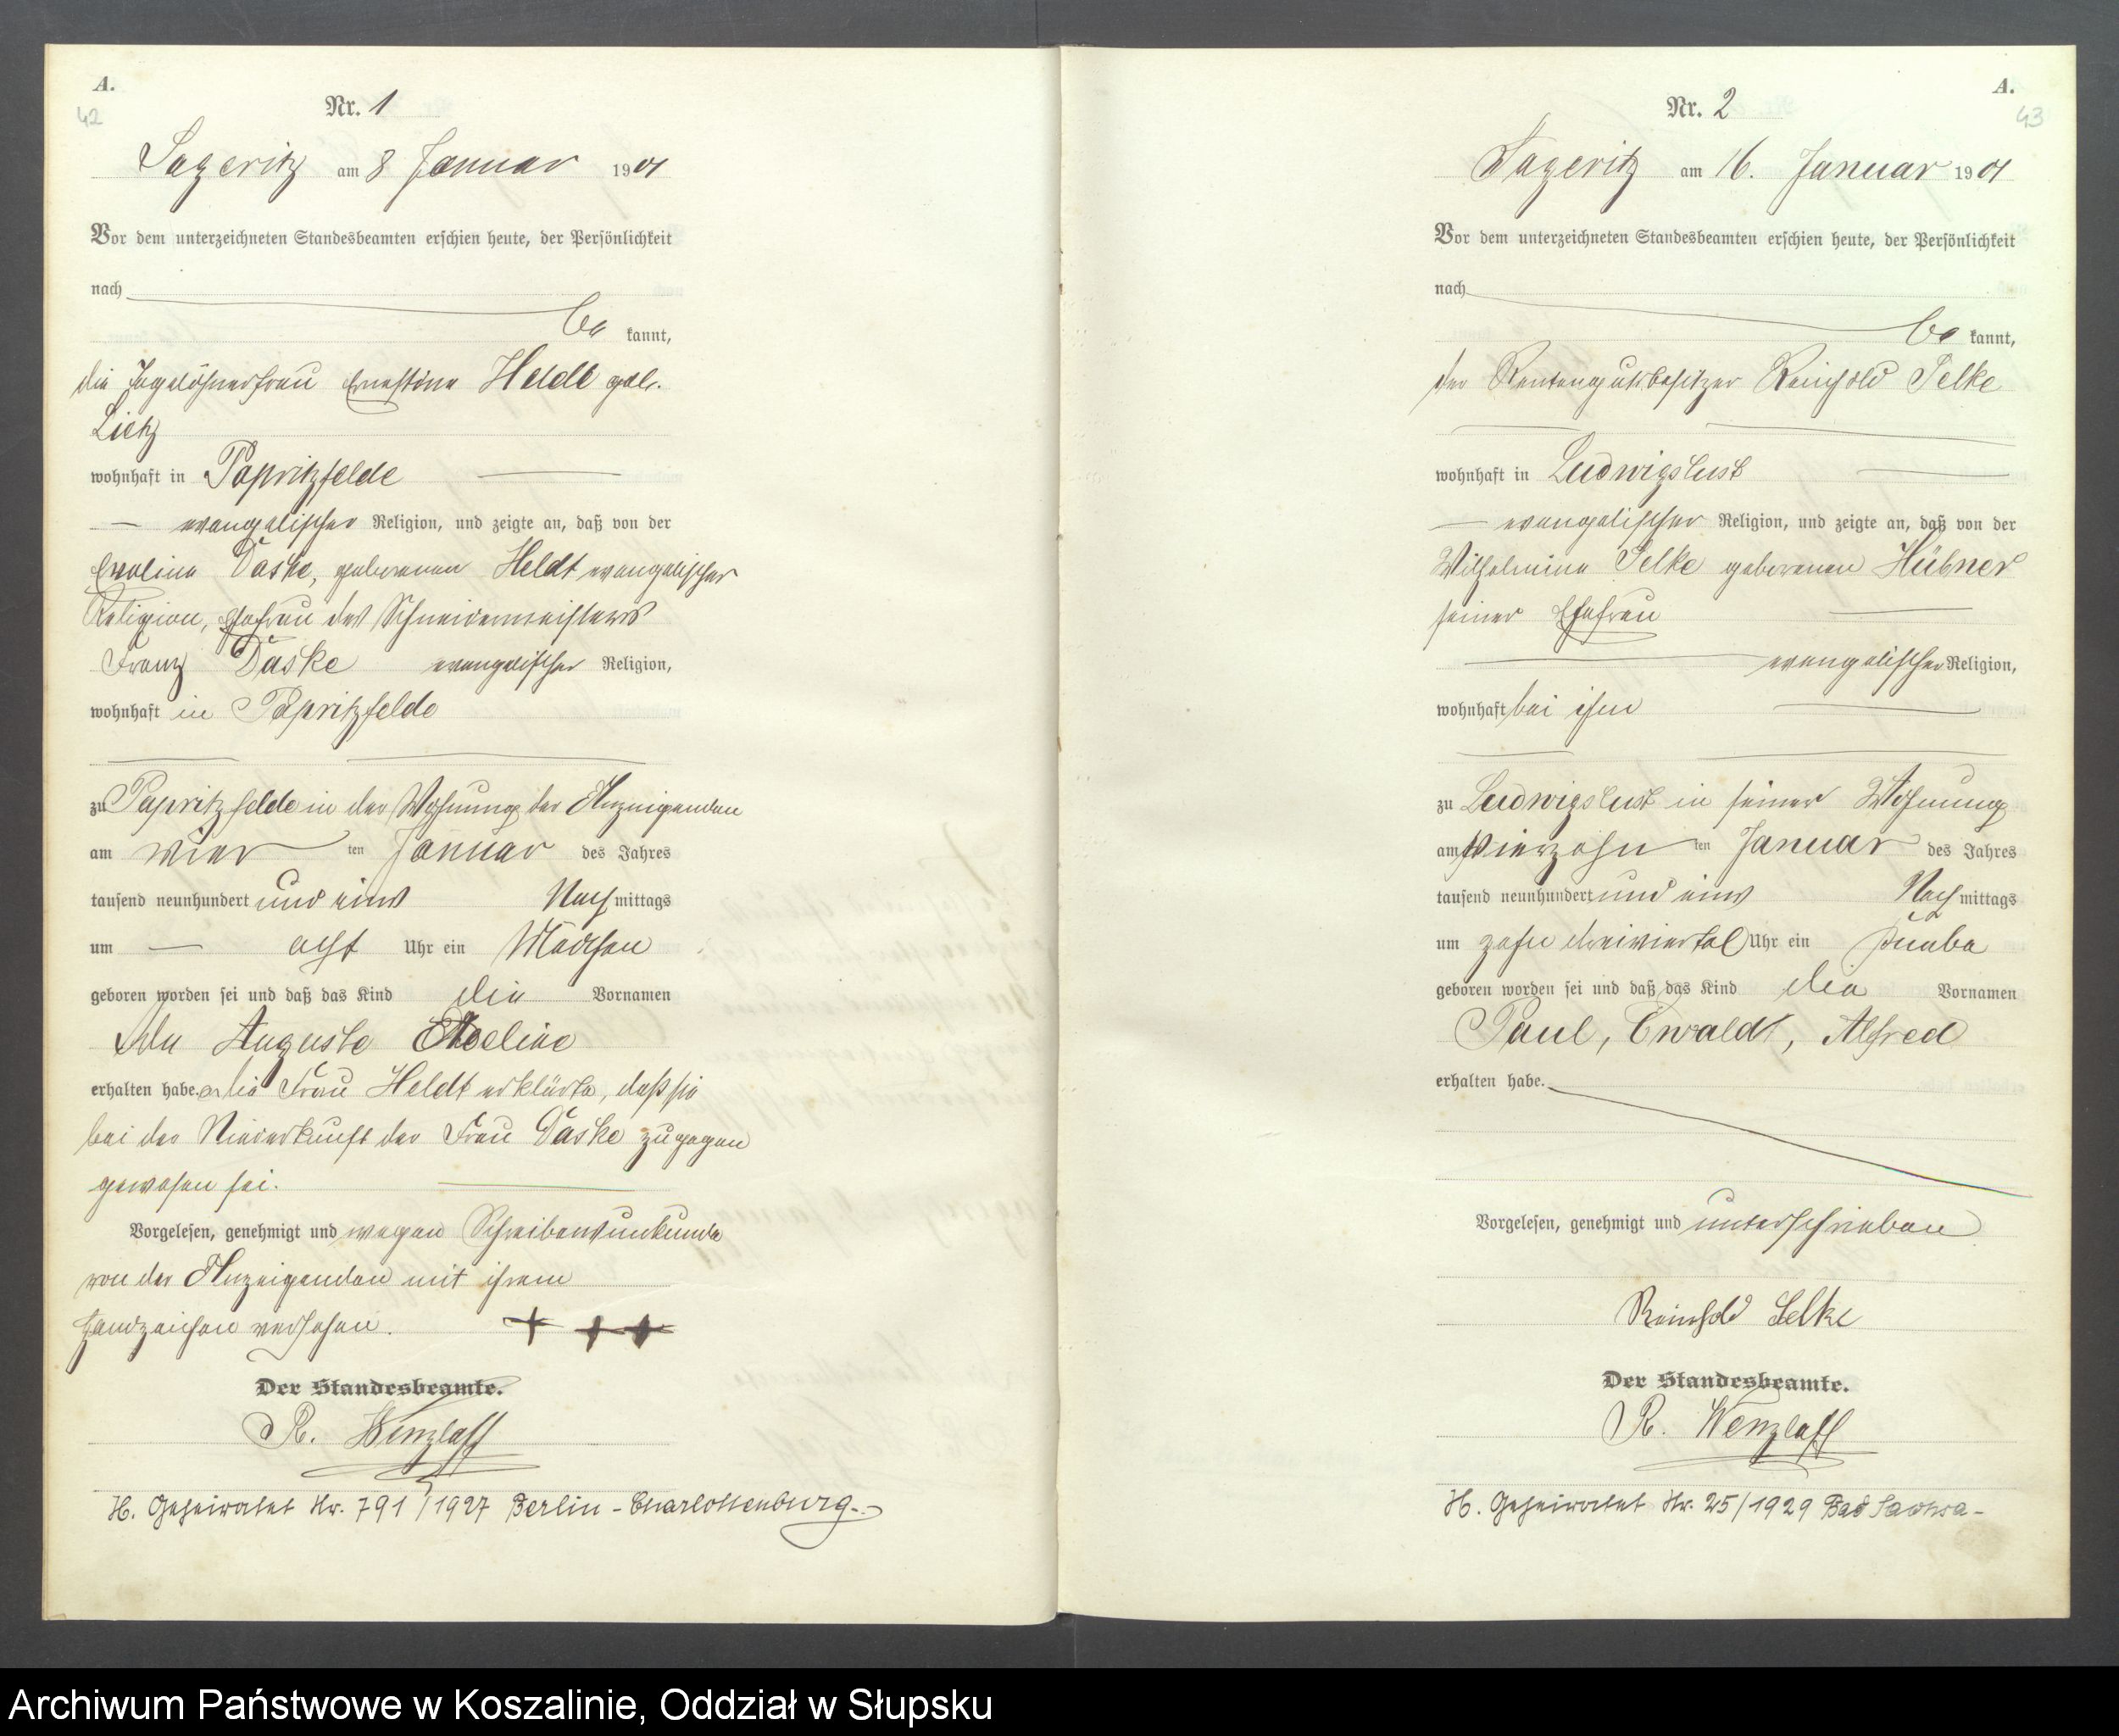 A.
42
Nr. 1
Sageritz am 8 Januar 1901
Vor dem unterzeichneten Standesbeamten erschien heute, der Persönlichkeit
nach
be kannt,
die Tagelöhnerfrau Ernestine Heldt geb.
Lietz
wohnhaft in Papritzfelde
evangelischer Religion, und zeigte an, daß von der
Eveline Daske, geborenen Heldt evangelischer
Religion, Ehefrau des Schneidermeisters
Franz Daske evangelischer Religion,
wohnhaft in Papritzfelde
zu Papritzfelde in der Wohnung der Anzeigenden
am vier ten Januar des Jahres
tausend neunhundert und eins Nach mittags
um acht Uhr ein Mädchen
geboren worden sei und daß das Kind die Vornamen
Ida Auguste
erhalten habe. Die Frau Heldt erklärte, daß sie
bei der Niederkunft der Frau Daske zugegen
gewesen sei.
Vorgelesen, genehmigt und wegen Schreibensunkunde
von der Anzeigenden mit ihrem
Handzeichen versehen. + + +
Der Standesbeamte.
R. Wenzlaff
H. Geheiratet Nr. 791/1927 Berlin-Charlottenburg.
A.
43
Nr. 2
Sageritz am 16. Januar 1901
Vor dem unterzeichneten Standesbeamten erschien heute, der Persönlichkeit
nach
be kannt,
der Rentengutsbesitzer Reinhold Selke
wohnhaft in Ludwigslust
evangelischer Religion, und zeigte an, daß von der
Wilhelmine Selke geborenen Hübner
seiner Ehefrau
evangelischer Religion,
wohnhaft bei ihm
zu Ludwigslust in seiner Wohnung
am vierzehn ten Januar des Jahres
tausend neunhundert und eins Nach mittags
um zehn dreiviertel Uhr ein Knabe
geboren worden sei und daß das Kind die Vornamen
Paul, Ewaldt, Alfred
erhalten habe.
Vorgelesen, genehmigt und unterschrieben
Reinhold Selke
Der Standesbeamte.
R. Wenzlaff
H. Geheiratet Nr. 25/1929 Bad Sachsa-
Archiwum Państwowe w Koszalinie, Oddział w Słupsku